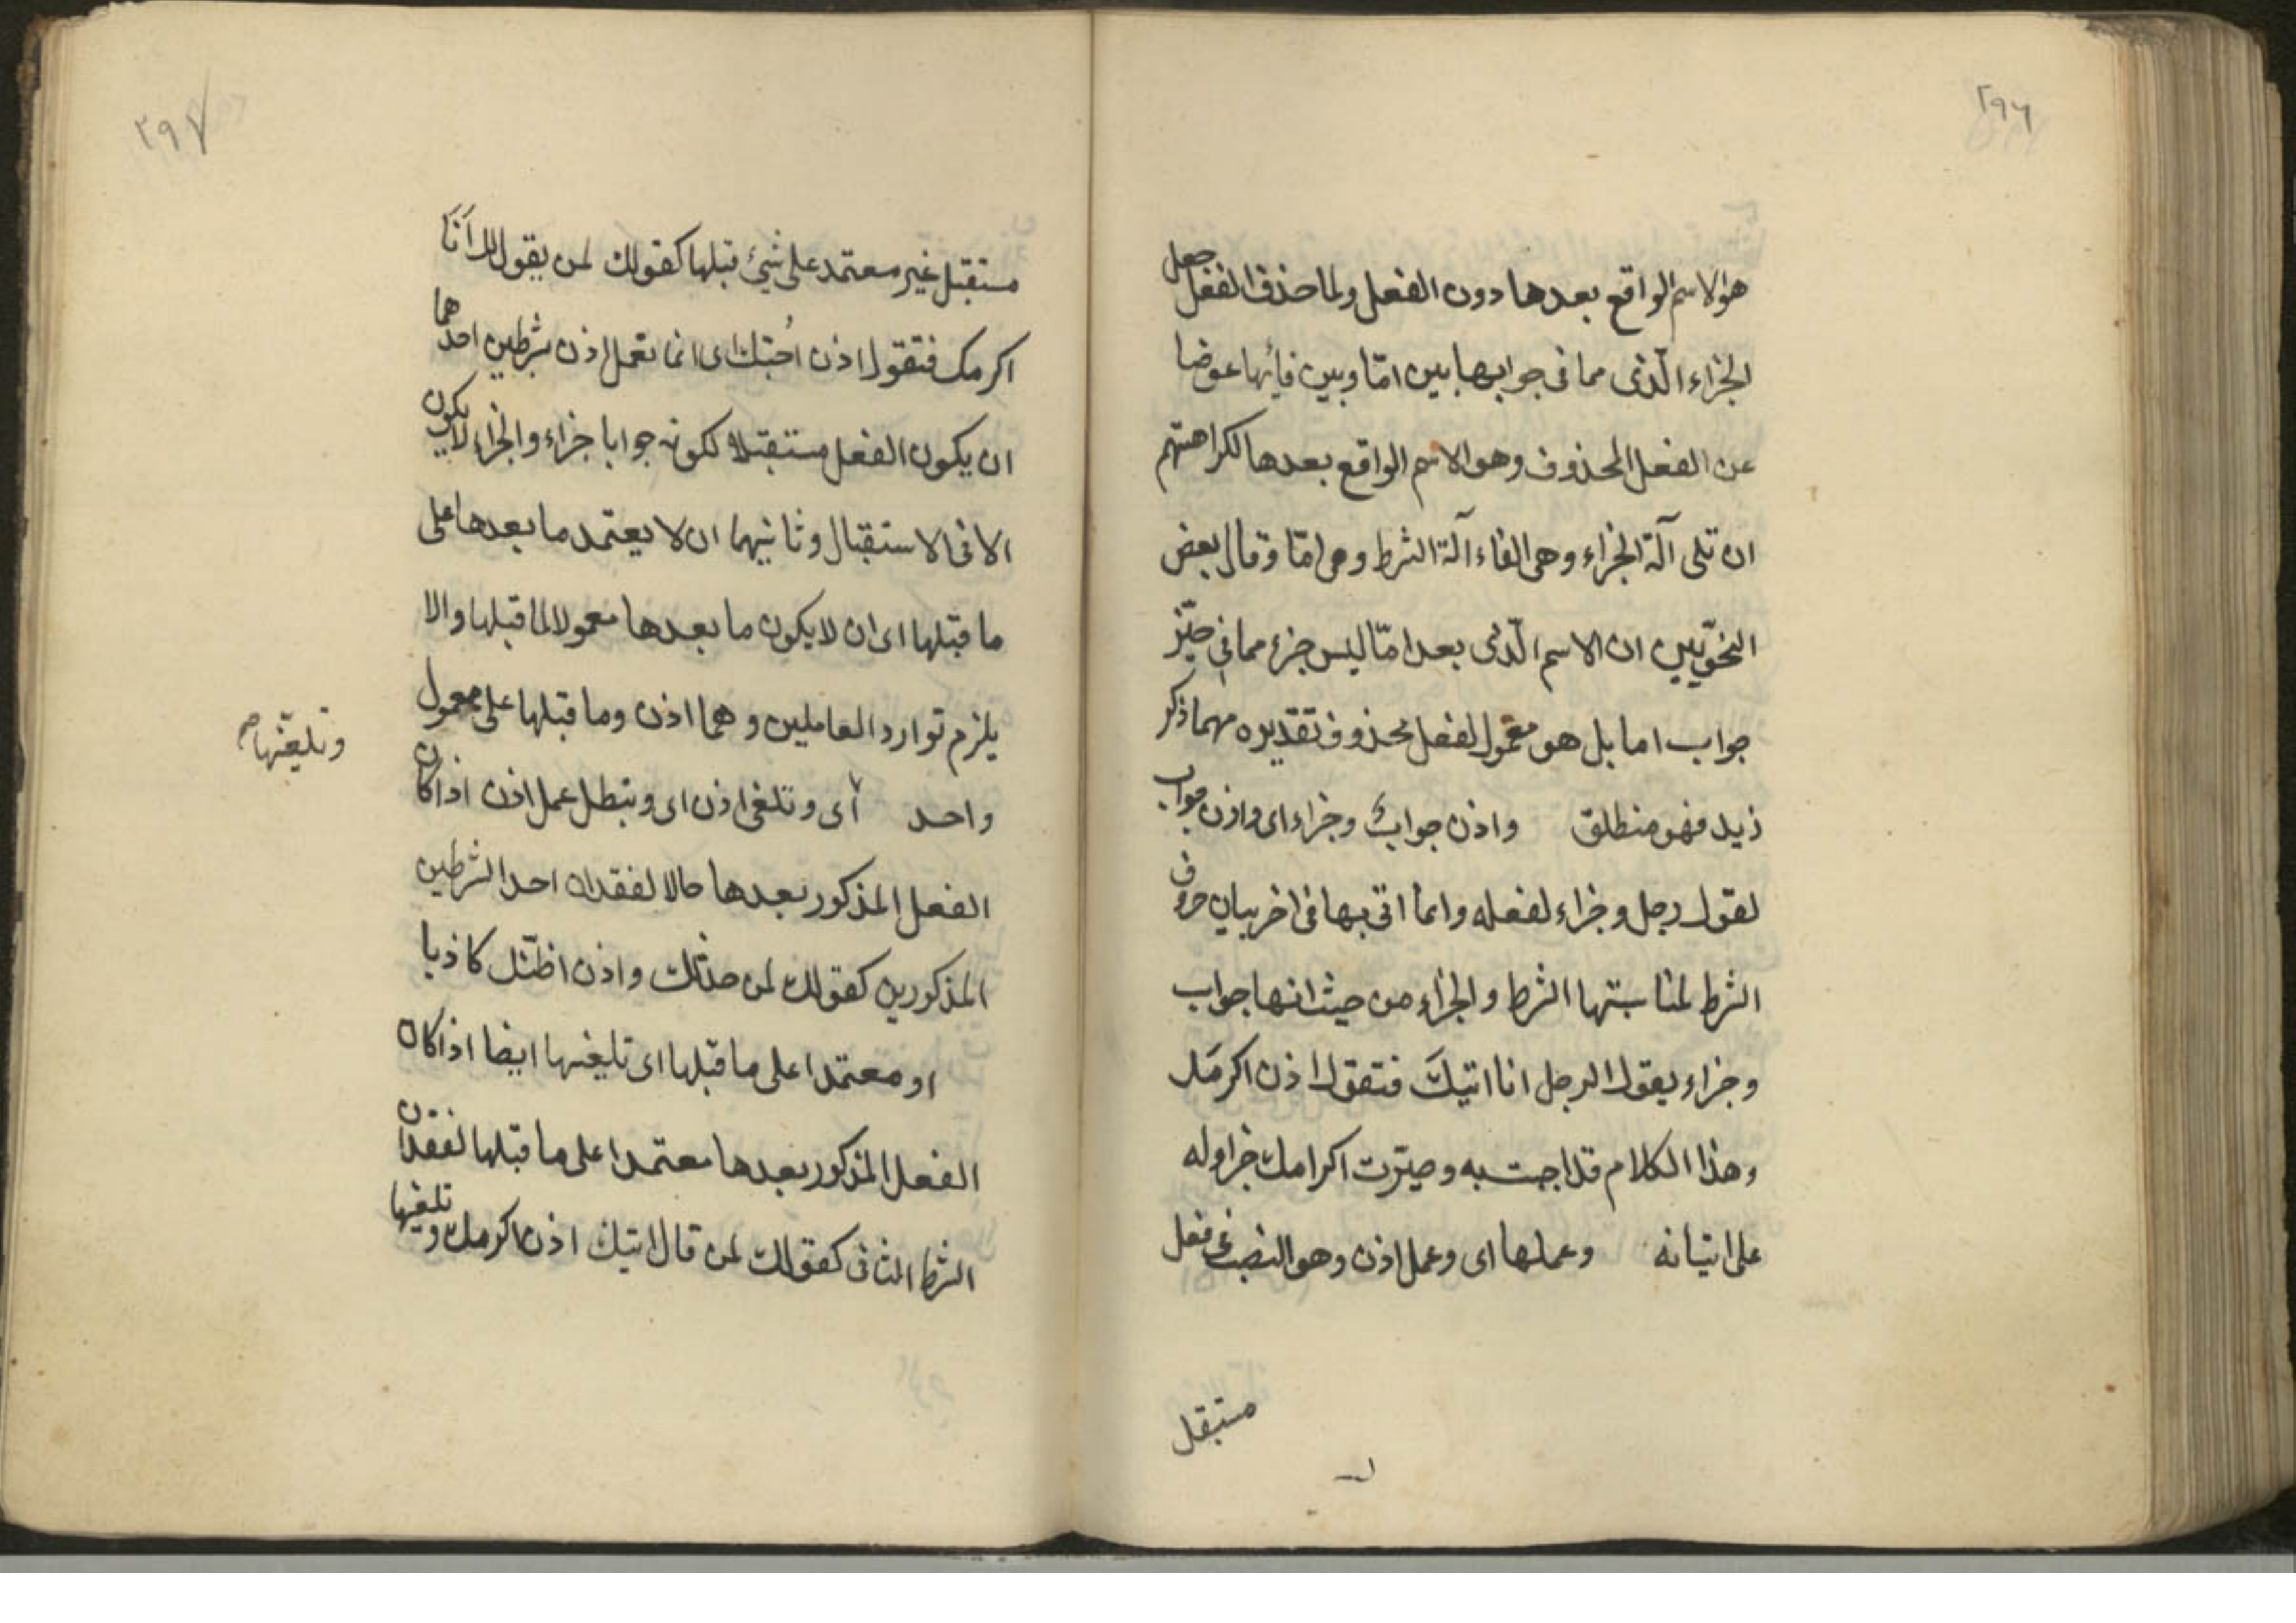 ٢٩٦
هو الاسم الواقع بعدها دون الفعل ولما حذف الفعل جعل
الجزاء الّذى مما فى جوابها بين امّا وبين فائها عوضا
عن الفعل المحذوف وهو الاسم الواقع بعدها لكراهتهم
ان تلى آلة الجزاء وهى الفاء آلة الشرط وهى امّا وقال بعض
النحويّين ان الاسم الّذى بعد امّا ليس جزء مما فى حيّز
جواب اما بل هو معمول لفعل محذوف تقديره مهما ذكر
زيد فهو منطلق واذن جواب وجزاء اى واذن جواب
لقول رجل وجزاء لفعله وانما اتى بها فى اخر بيان حروف
الشرط لمناسبتها الشرط والجزاء من حيث انها جواب
وجزاء يقول الرجل انا اتيك فتقول اذن اكرمك
وهذا الكلام قد اجبت به وصيّرت اكرامك جزاء له
على اتيانه وعملها اى وعمل اذن وهو النصب فى فعل
مستقبل
٢٩٧
مستقبل غير معتمد على شئ قبلها كقولك لمن يقول لك انا
اكرمك فتقول اذن احبّك اى انما تعمل اذن بشرطين احدهما
ان يكون الفعل مستقبلا لكونه جوابا جزاء والجزاء لا يكون
الا فى الاستقبال وثانيهما ان لا يعتمد ما بعدها على
ما قبلها اى ان لا يكون ما بعدها معمولا لما قبلها والا
يلزم توارد العاملين وهما اذن وما قبلها على معمول
وتلغيها صح
واحد اى وتلغى اذن اى ويبطل عمل اذن اذا كان
الفعل المذكور بعدها حالا لفقدان احد الشرطين
المذكورين كقولك لمن حدثك واذن اظنّك كاذبا
او معتمدا على ما قبلها اى تلغيها ايضا اذا كان
الفعل المذكور بعدها معتمدا على ما قبلها لفقدان
الشرط الثانى كقولك لمن قال اتيك اذن اكرمك وتلغيها